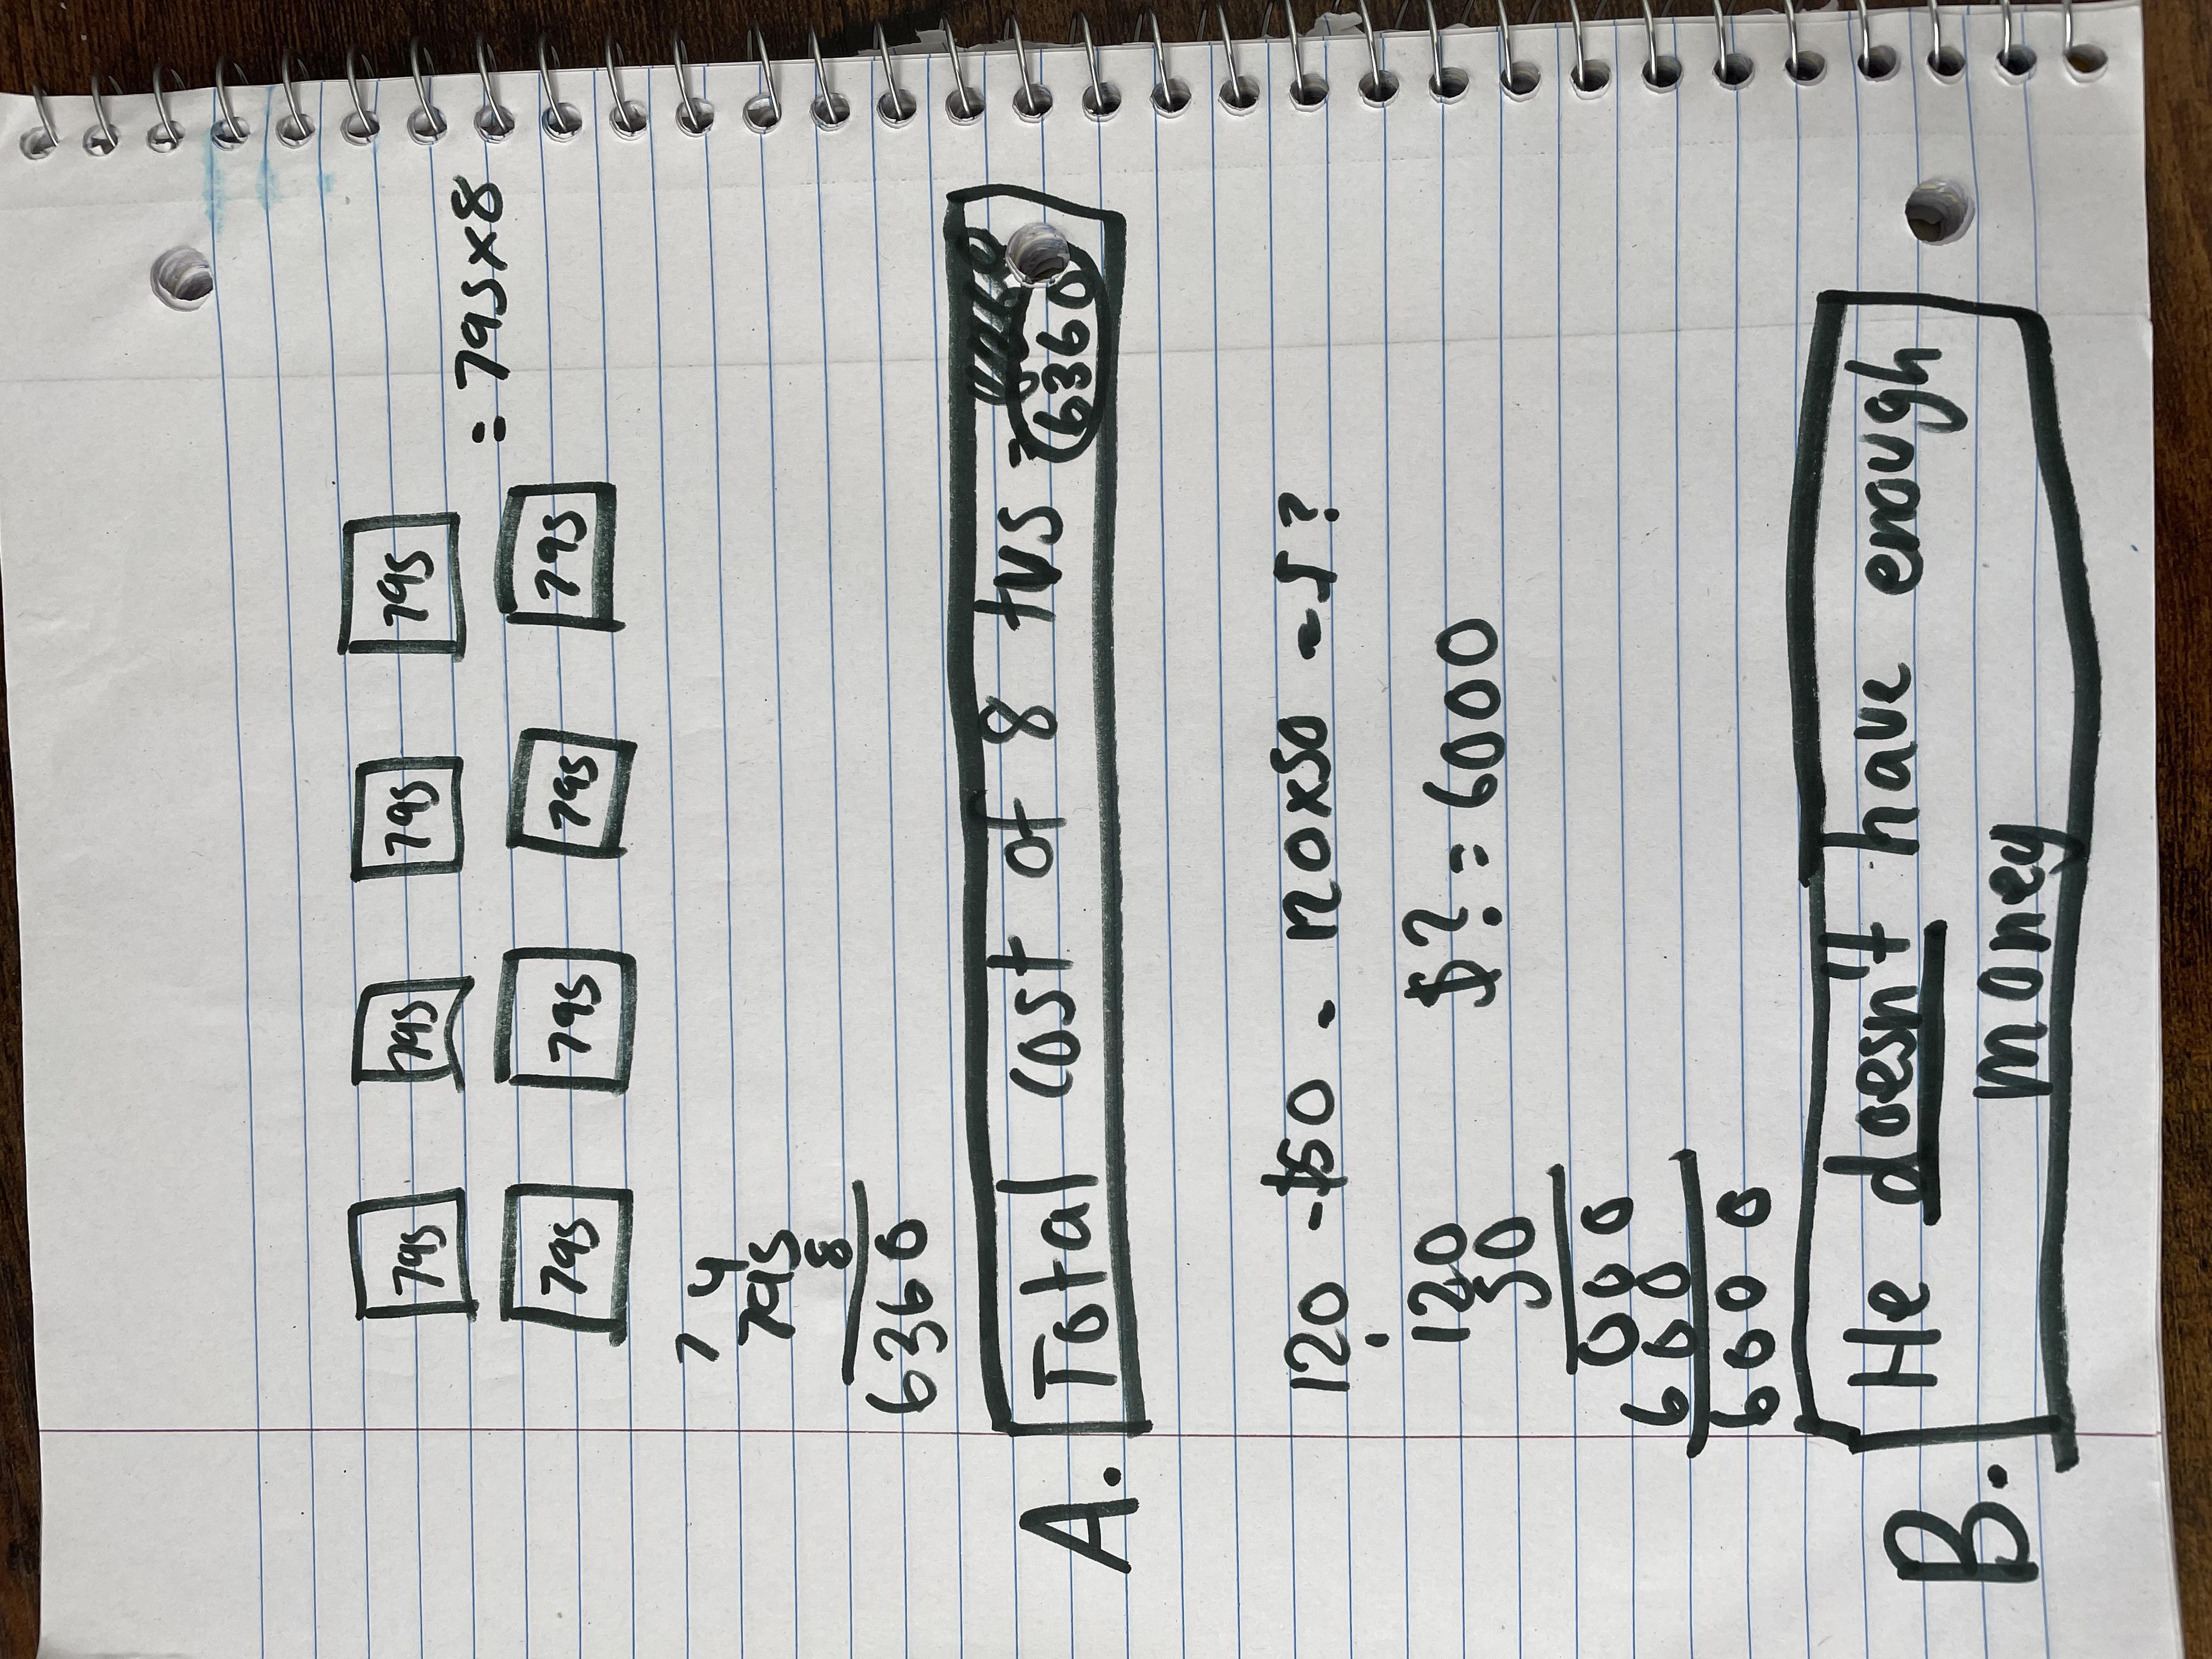 795 795 795 795
= 795x8
795 795 795 795
7 4
795
8
6360
A. Total cost of 8 tvs =
6360
120 - $50 - 120x50 = $ ?
120
50
$? = 6000
000
600
6000
B. He doesn't have enough
money